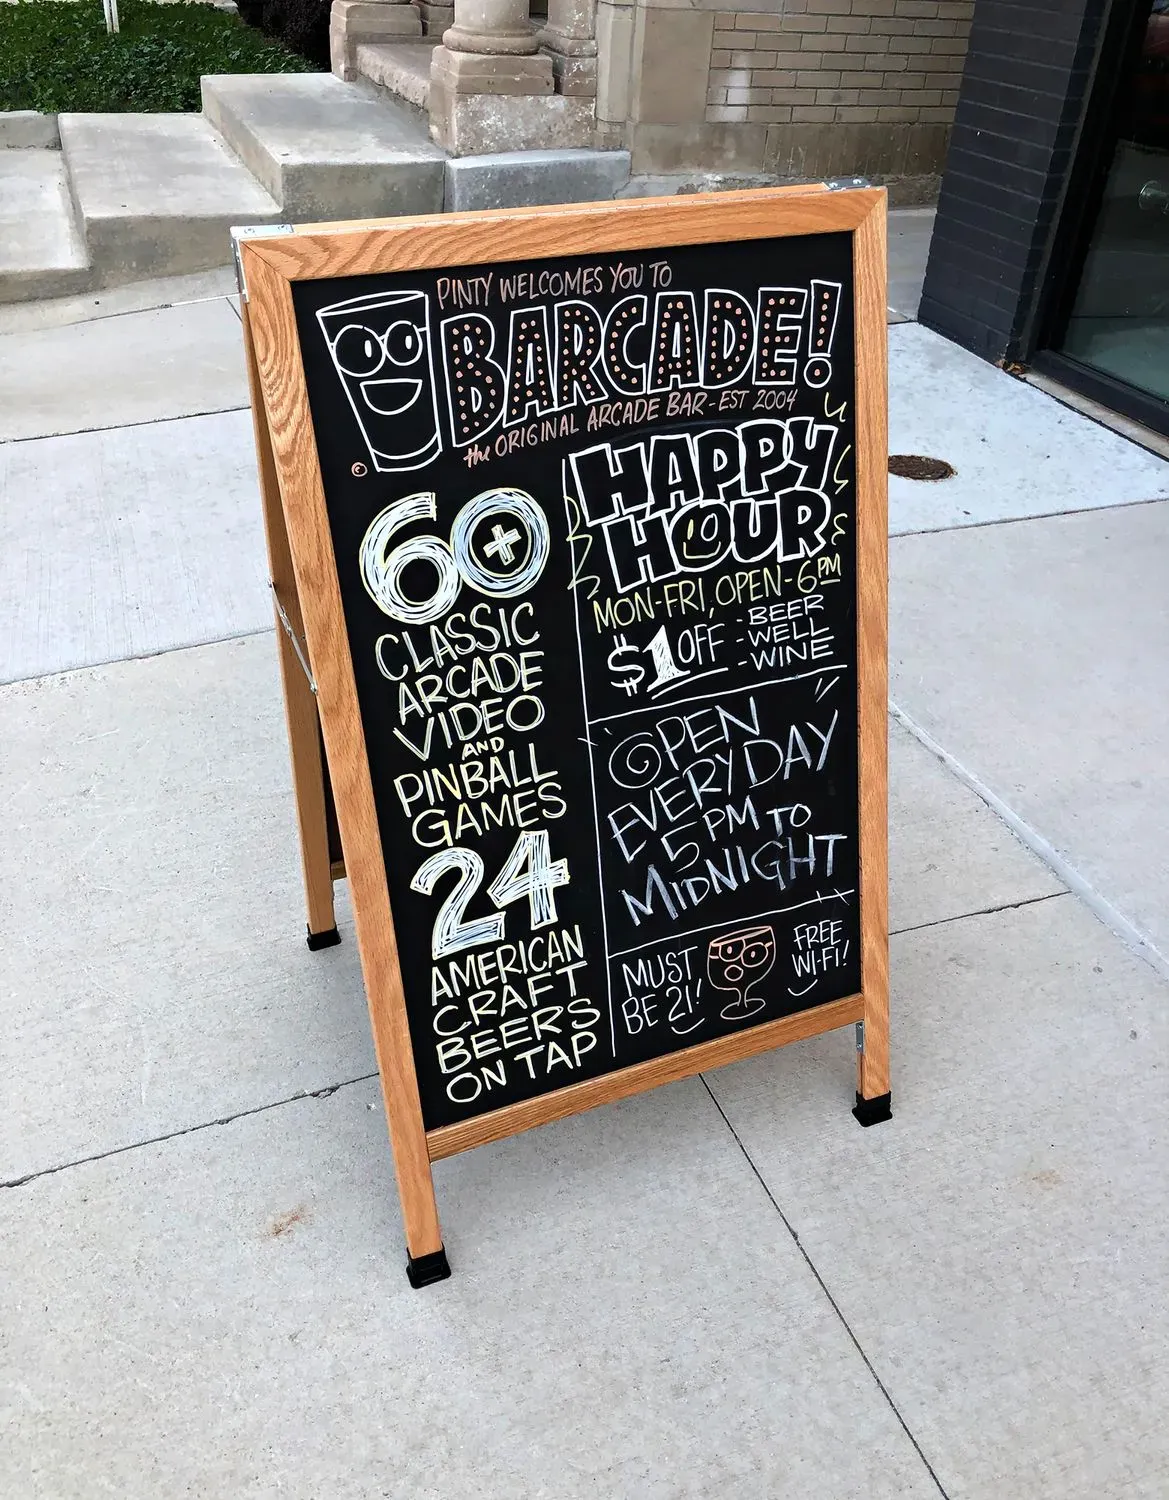 PINTY WELCOMES YOU TO
BARCADE!
the ORIGINAL ARCADE BAR - EST 2004
60+
CLASSIC
ARCADE
VIDEO
AND
PINBALL
GAMES
24
AMERICAN
CRAFT
BEERS
ON TAP
HAPPY
HOUR
MON-FRI, OPEN-6PM
$1 OFF
- BEER
- WELL
- WINE
OPEN
EVERYDAY
5 PM TO
MIDNIGHT
MUST
BE 21!
FREE
WI-FI!